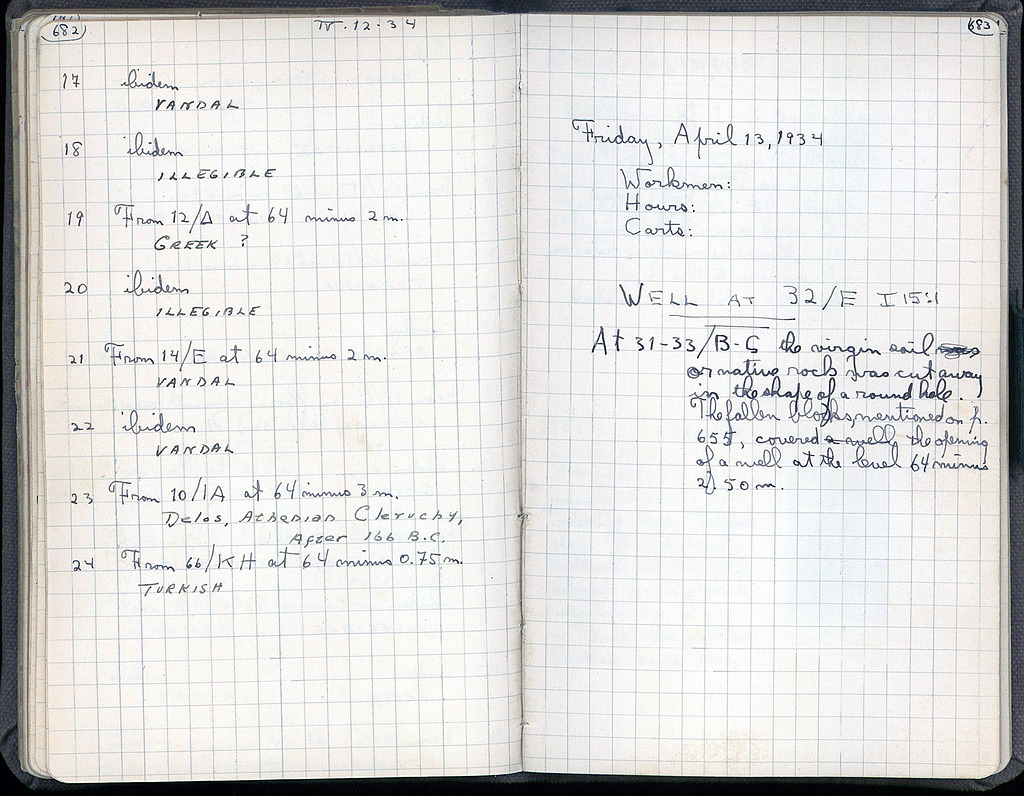 682
IV·12·34
17 ibidem
VANDAL
18 ibidem
ILLEGIBLE
19 From 12/Δ at 64 minus 2 m.
GREEK ?
20 ibidem
ILLEGIBLE
21 From 14/E at 64 minus 2 m.
VANDAL
22 ibidem
VANDAL
23 From 10/IA at 64 minus 3 m.
Delos, Athenian Cleruchy,
After 166 B.C.
24 From 66/KH at 64 minus 0.75 m.
TURKISH
683
Friday, April 13, 1934
Workmen:
Hours:
Carts:
WELL AT 32/E I 15:1
At 31-33/B-Ϛ the virgin soil
or native rock was cut away
in the shape of a round hole.
The fallen blocks, mentioned on p.
655, covered a well, the opening
of a well at the level 64 minus
2.50 m.